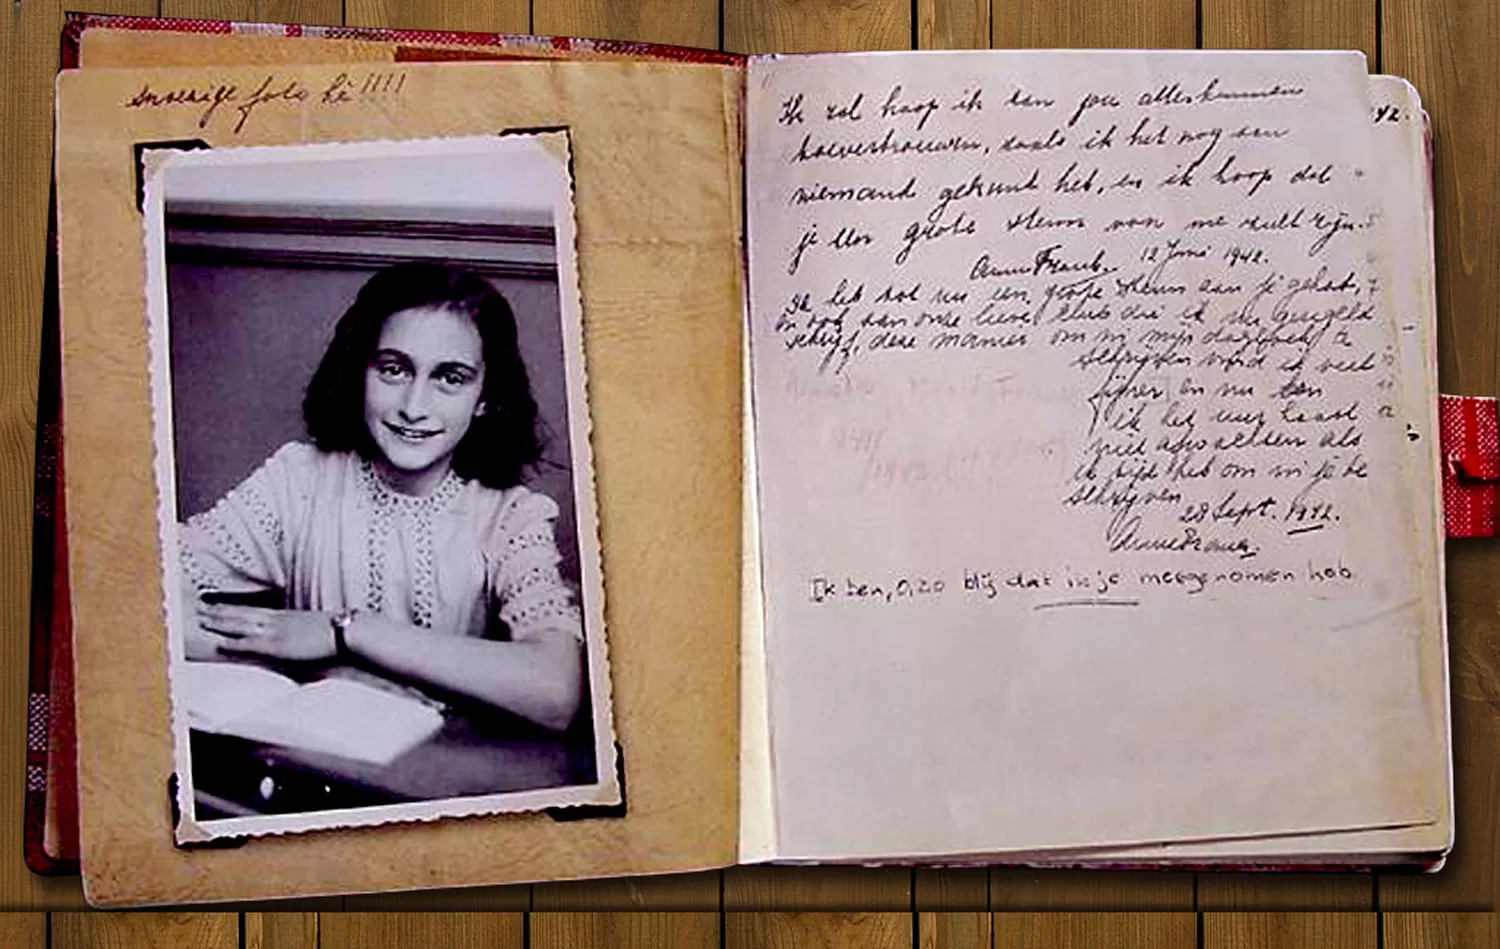 snoezige foto hè!!!!
Ik zal hoop ik aan jou alles kunnen
toevertrouwen, zoals ik het nog aan
niemand gekund heb, en ik hoop dat
je een grote steun voor me zult zijn.
Anne Frank. 12 Juni 1942.
Ik heb tot nu een grote steun aan je gehad,
en ook aan onze lieve club die ik nu geregeld
schrijf, deze manier om in mijn dagboek te
schrijven vind ik veel
fijner en nu kan
ik het uur haast
niet afwachten als
ik tijd heb om in je te
schrijven
28 Sept. 1942.
Anne Frank.
Ik ben, o, zo blij dat ik je meegenomen heb
42.